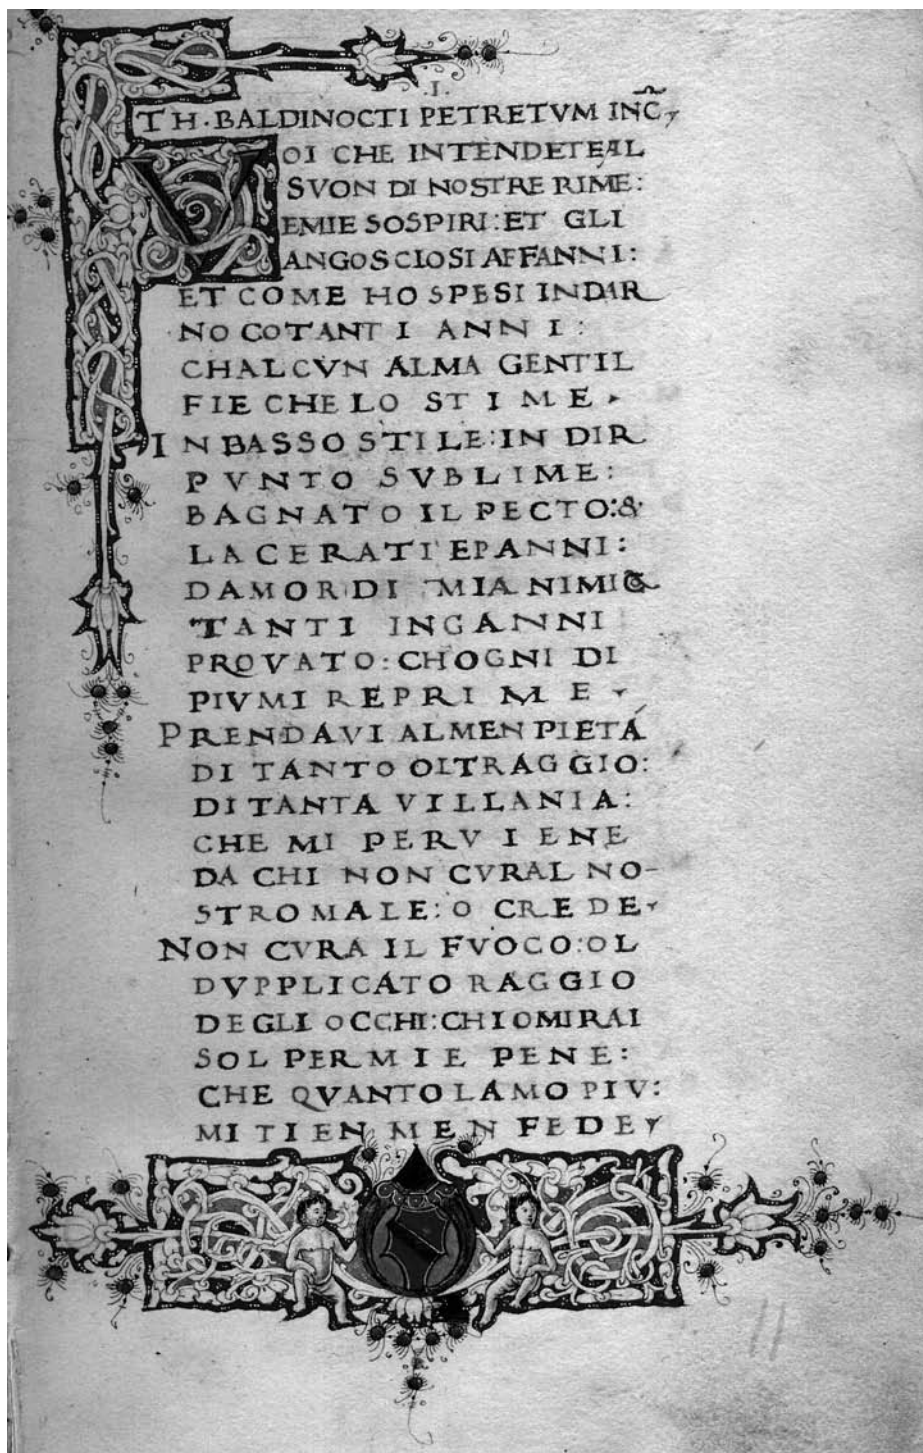 .I.
TH·BALDINOCTI PETRETVM INC̄
VOI CHE INTENDETE AL
SVON DI NOSTRE RIME:
EMIE SOSPIRI: ET GLI
ANGOSCIOSI AFFANNI:
ET COME HO SPESI INDAR
NO COTANTI ANNI:
CHALCVN ALMA GENTIL
FIE CHE LO STIME
IN BASSO STILE: IN DIR
PVNTO SVBLIME:
BAGNATO IL PECTO: &
LACERATI EPANNI:
DAMOR DI MIA NIMICA
TANTI INGANNI
PROVATO: CHOGNI DI
PIV MI REPRIME
PRENDAVI ALMEN PIETÁ
DI TANTO OLTRAGGIO:
DI TANTA VILLANIA:
CHE MI PERVIENE
DA CHI NON CVRAL NO-
STRO MALE: O CREDE
NON CVRA IL FVOCO: OL
DVPPLICATO RAGGIO
DEGLI OCCHI: CHIO MIRAI
SOL PER MIE PENE:
CHE QVANTO LAMO PIV:
MI TIEN MEN FEDE
11